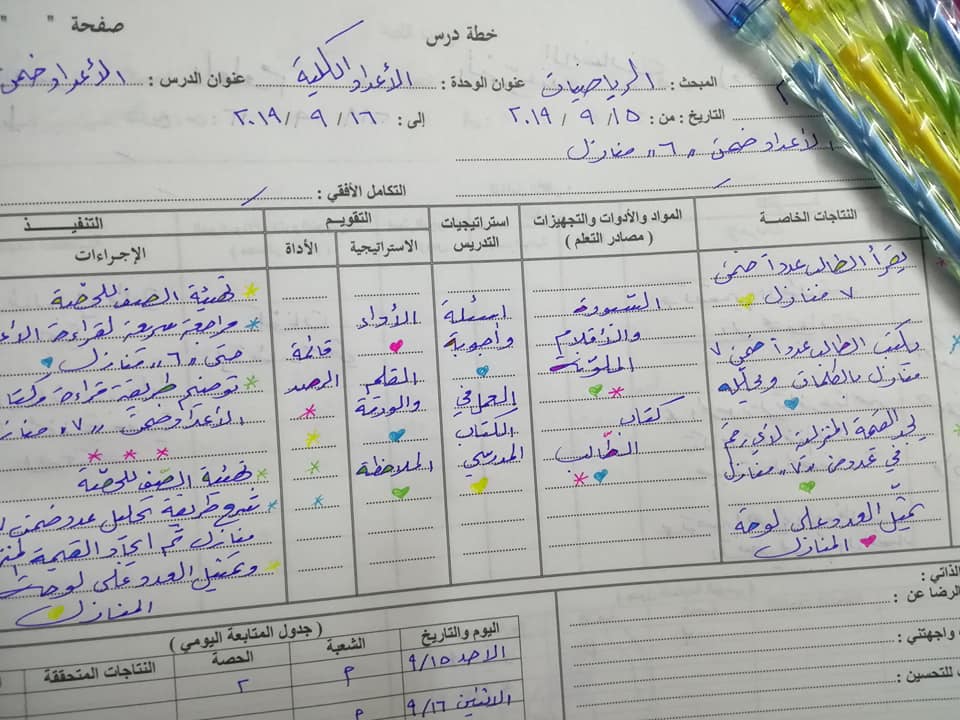 خطة درس
صفحة " "
المبحث : الرياضيات عنوان الوحدة : الأعداد الكلية عنوان الدرس : الأعداد ضمن
التاريخ : من : ١٥ / ٩ / ٢٠١٩ إلى : ١٦ / ٩ / ٢٠١٩
الأعداد ضمن "٦" منازل
التكامل الأفقي :
النتاجات الخاصة
المواد والأدوات والتجهيزات
( مصادر التعلم )
استراتيجيات
التدريس
التقويم
الاستراتيجية
الأداة
التنفيذ
الإجراءات
يقرأ الطالب عدداً ضمن
٧ منازل
يكتب الطالب عدداً ضمن ٧
منازل بالكلمات ويحلله
القيمة المنزلية لأي رقم
في عدد ضمن "٧" منازل
تمثيل العدد على لوحة
المنازل
السبورة
والأقلام
الملونة
كتاب
الطالب
أسئلة
وأجوبة
العمل في
الكتاب
المدرسي
الأداء
القلم
والورقة
الملاحظة
قائمة
الرصد
تهيئة الصف للحصة
مراجعة سريعة لقراءة
حتى "٦" منازل
توضيح طريقة قراءة
الأعداد ضمن "٧" منازل
تهيئة الصف للحصة
شرح طريقة تحليل عدد ضمن
منازل ثم ايجاد القيمة
وتمثيل العدد على لوحة
المنازل
الذاتي :
الرضا عن :
واجهتني :
للتحسين :
( جدول المتابعة اليومي )
اليوم والتاريخ
الشعبة
الحصة
النتاجات المتحققة
الاحد ٩/١٥
٢
الاثنين ٩/١٦